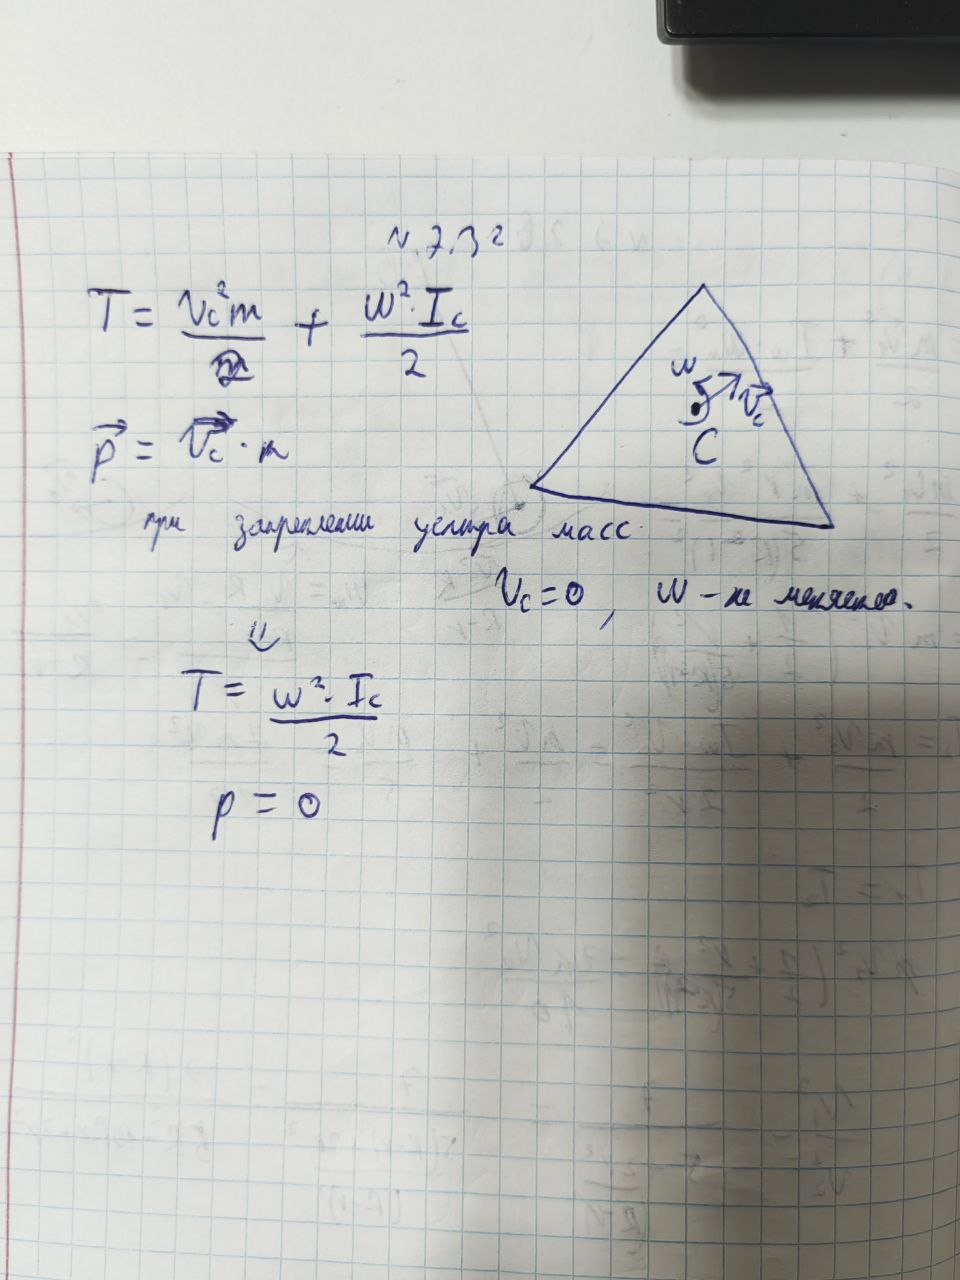 N 7.32
T = V_c²m / 2 + ω²·I_c / 2
ω
V⃗_c
C
p⃗ = V⃗_c · m
при закреплении центра масс
V_c = 0, ω – не меняется.
⇓
T = ω²·I_c / 2
p = 0